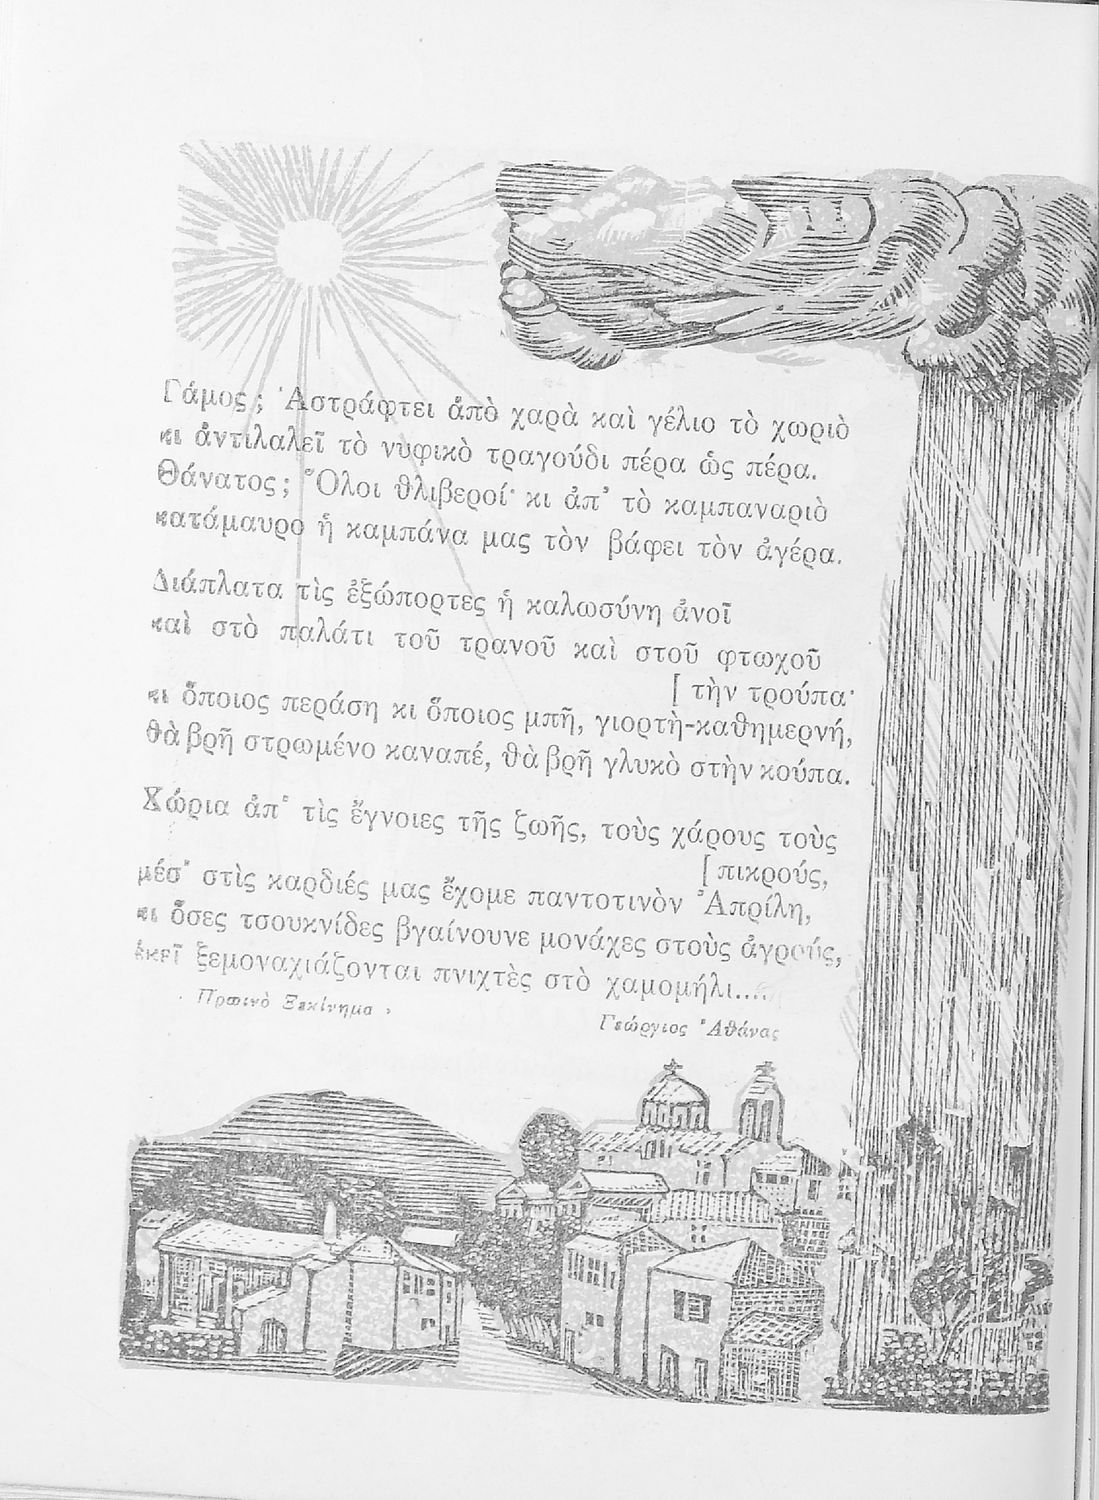 Γάμος; Ἀστράφτει ἀπὸ χαρὰ καὶ γέλιο τὸ χωριὸ
κι ἀντιλαλεῖ τὸ νυφικὸ τραγούδι πέρα ὡς πέρα.
Θάνατος; Ὅλοι θλιβεροί· κι ἀπ’ τὸ καμπαναριὸ
κατάμαυρο ἡ καμπάνα μας τὸν βάφει τὸν ἀγέρα.
Διάπλατα τὶς ἐξώπορτες ἡ καλωσύνη ἀνοῖ
καὶ στὸ παλάτι τοῦ τρανοῦ καὶ στοῦ φτωχοῦ
[ τὴν τρούπα·
κι ὅποιος περάση κι ὅποιος μπῆ, γιορτὴ-καθημερνή,
θὰ βρῆ στρωμένο καναπέ, θὰ βρῆ γλυκὸ στὴν κούπα.
Χώρια ἀπ’ τὶς ἔγνοιες τῆς ζωῆς, τοὺς χάρους τοὺς
[ πικρούς,
μέσ’ στὶς καρδιές μας ἔχομε παντοτινὸν Ἀπρίλη,
κι ὅσες τσουκνίδες βγαίνουνε μονάχες στοὺς ἀγρούς,
ἐκεῖ ξεμοναχιάζονται πνιχτὲς στὸ χαμομήλι....
Πρωινὸ Ξεκίνημα
Γεώργιος Ἀθάνας